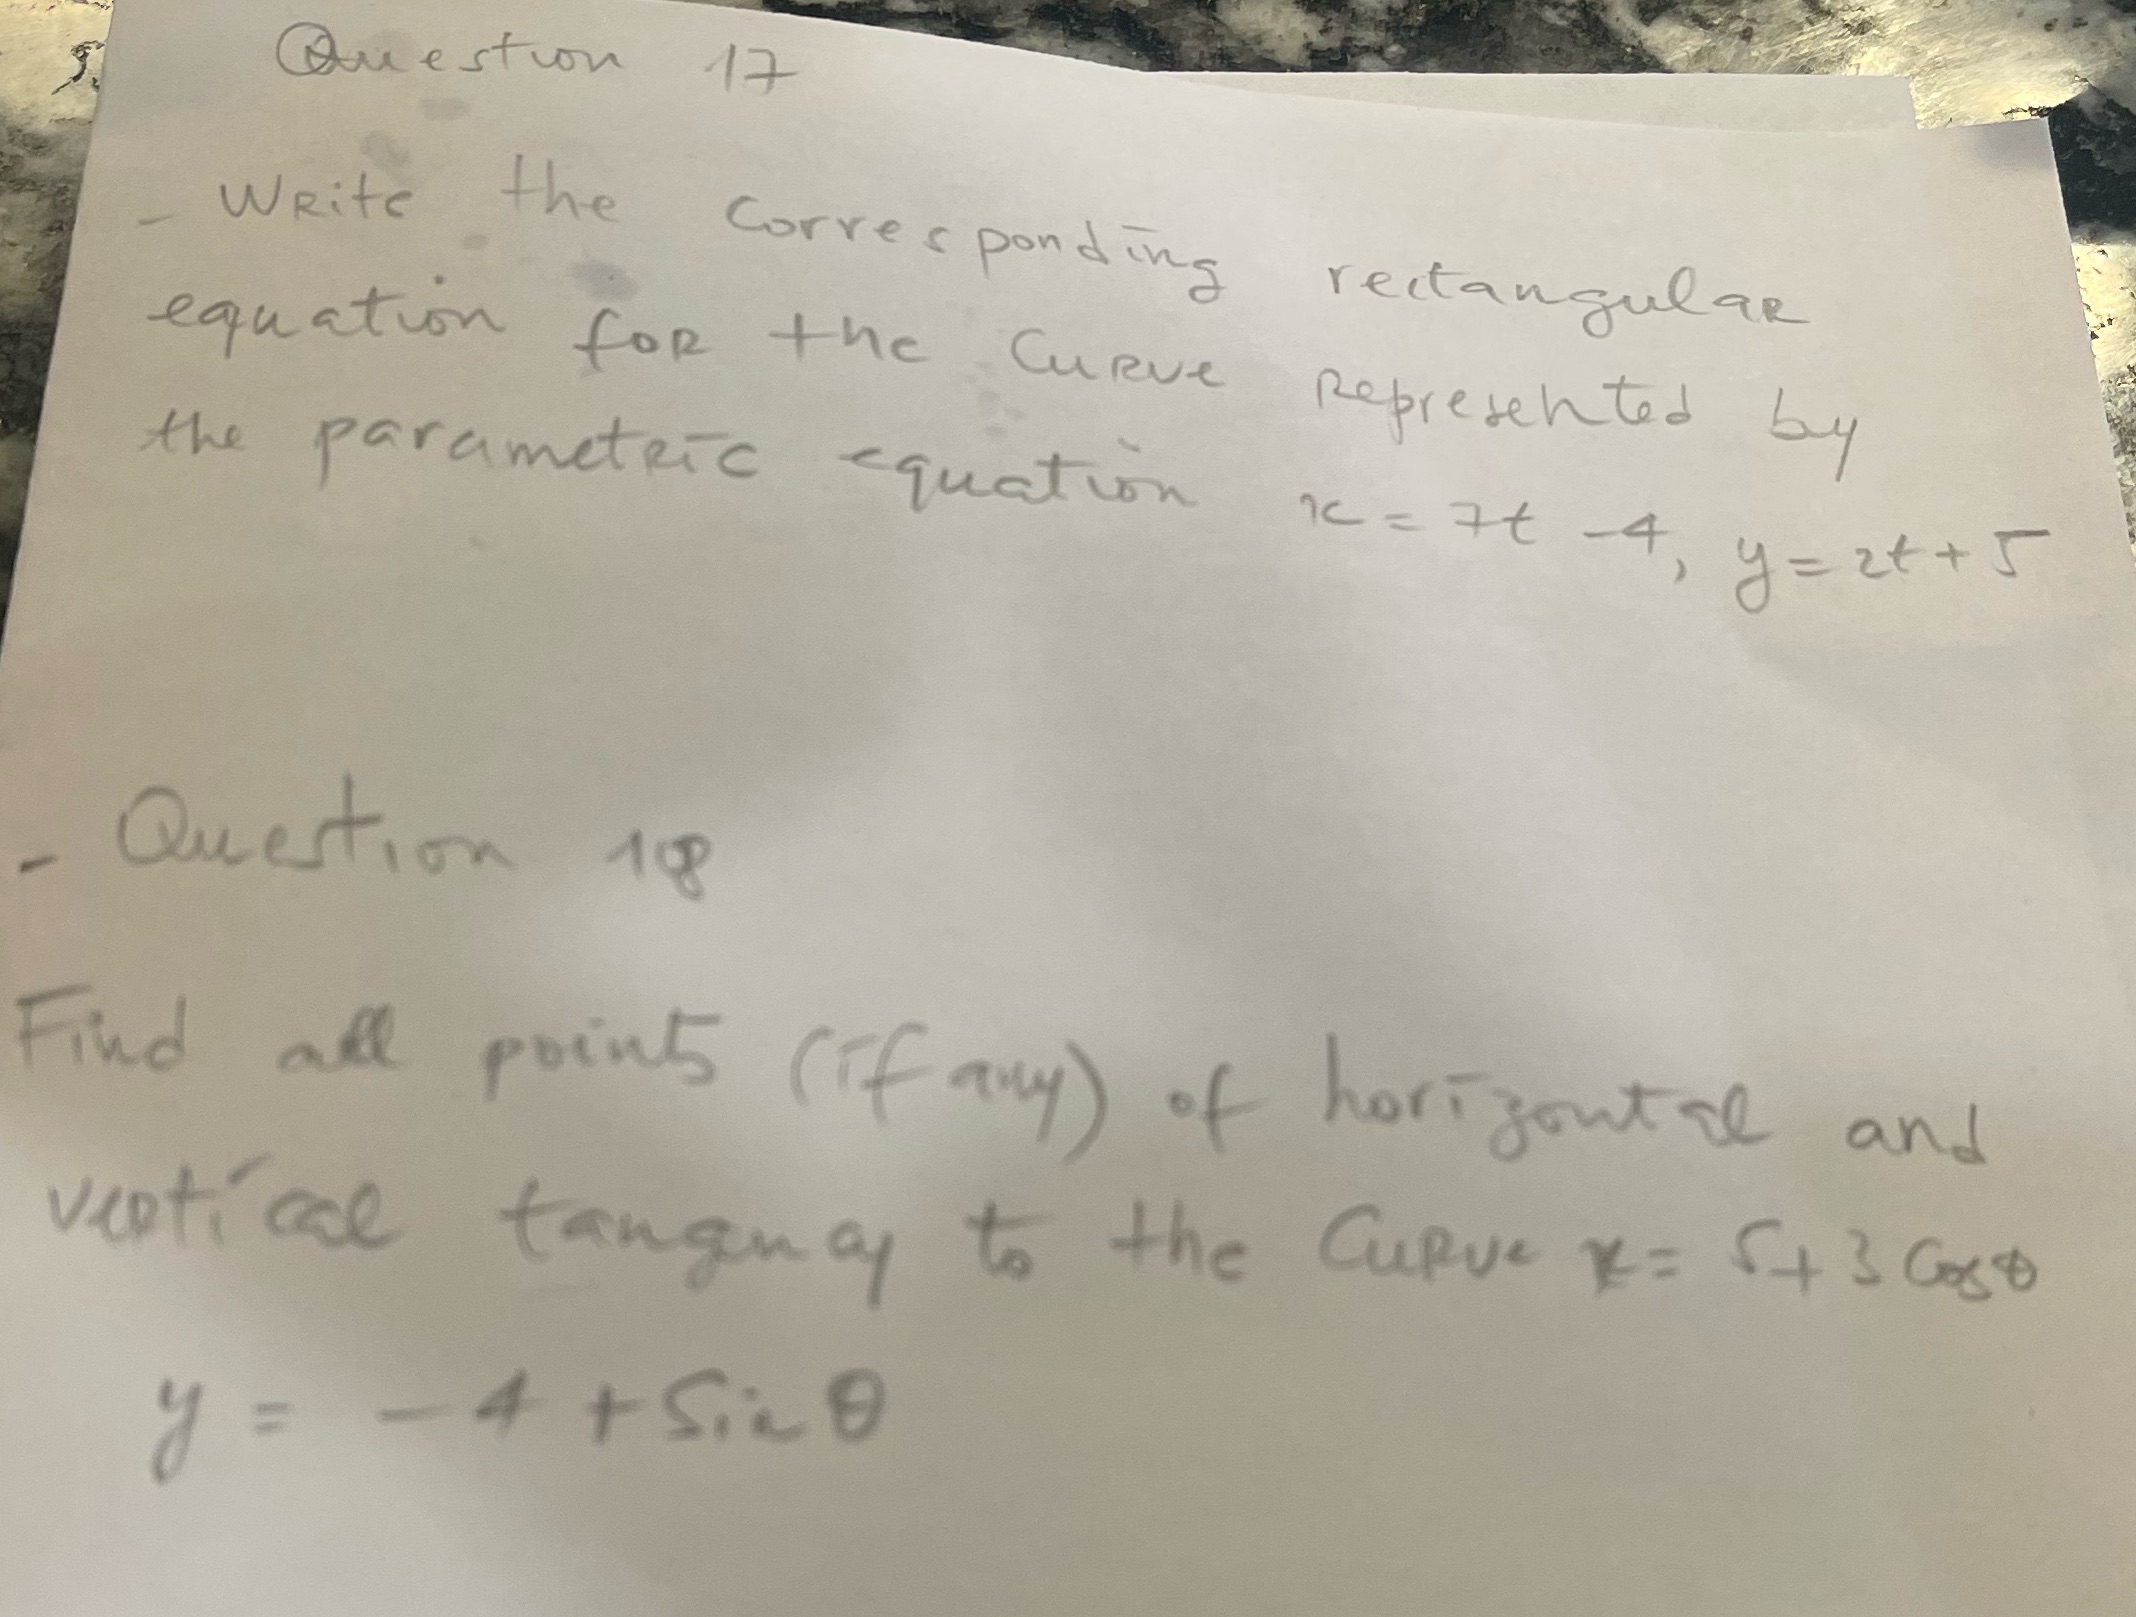 Question 17
- Write the corresponding rectangular
equation for the curve represented by
the parametric equation x = 7t - 4, y = 2t + 5
- Question 18
Find all points (if any) of horizontal and
vertical tangency to the curve x = 5 + 3 cos θ
y = - 4 + sin θ